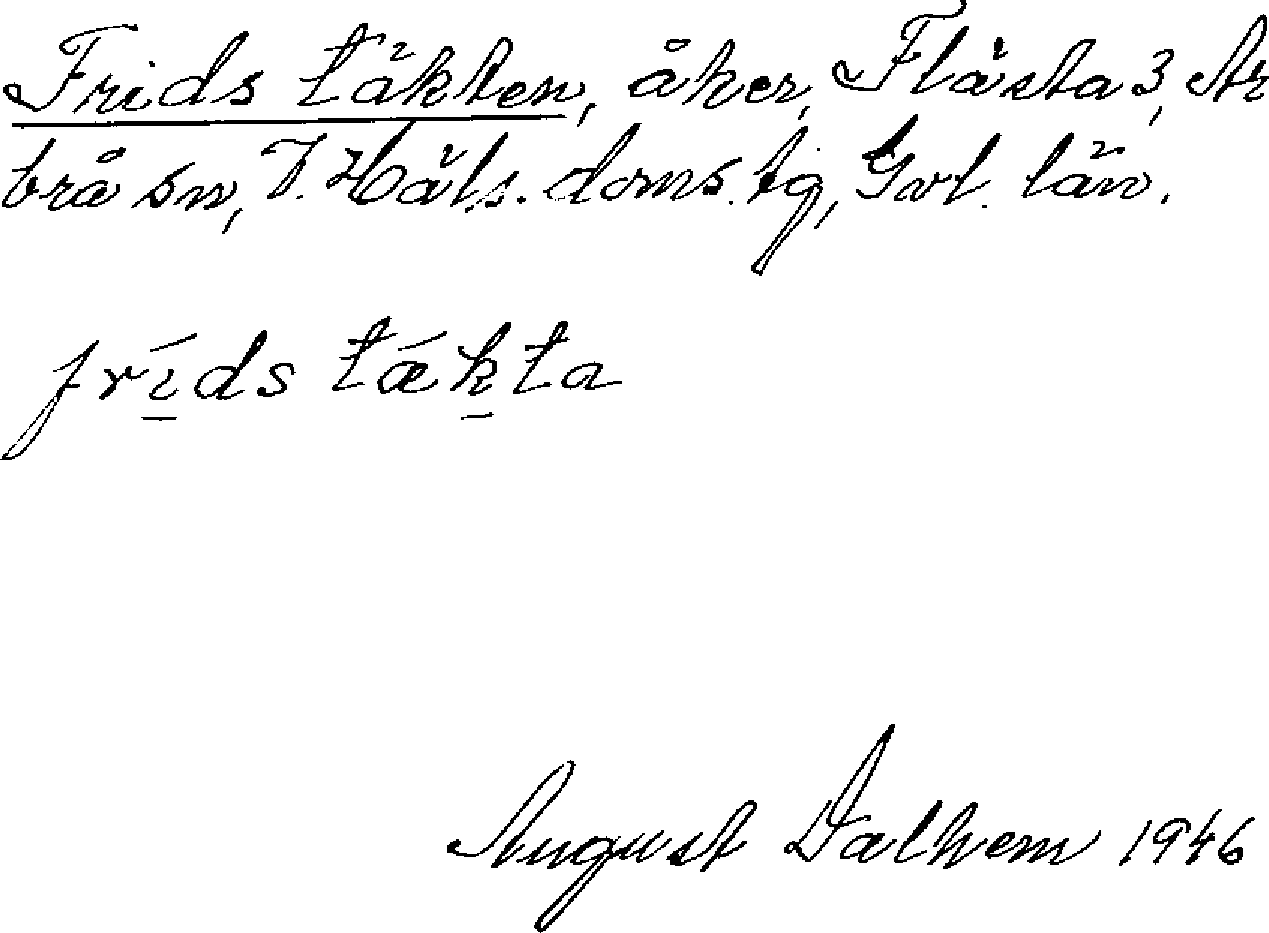 Frids täkten, åker, Flästa 3, Ar
brå sn, V. Häls. doms. tg, Gvl. län.
fríds tǽkta
August Dalhem 1946